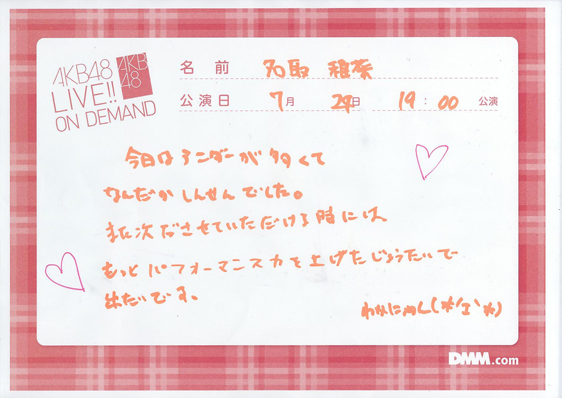 AKB48
LIVE!!
ON DEMAND
AKB
48
名前 名取 稚菜
公演日 7月 29日 19:00 公演
今日はアンダーが多くて
なんだかしんせんでした。
また次ださせていただける時には
もっとパフォーマンス力を上げたじょうたいで
出たいです。
わかにゃん(*'ｪ'*)
DMM.com